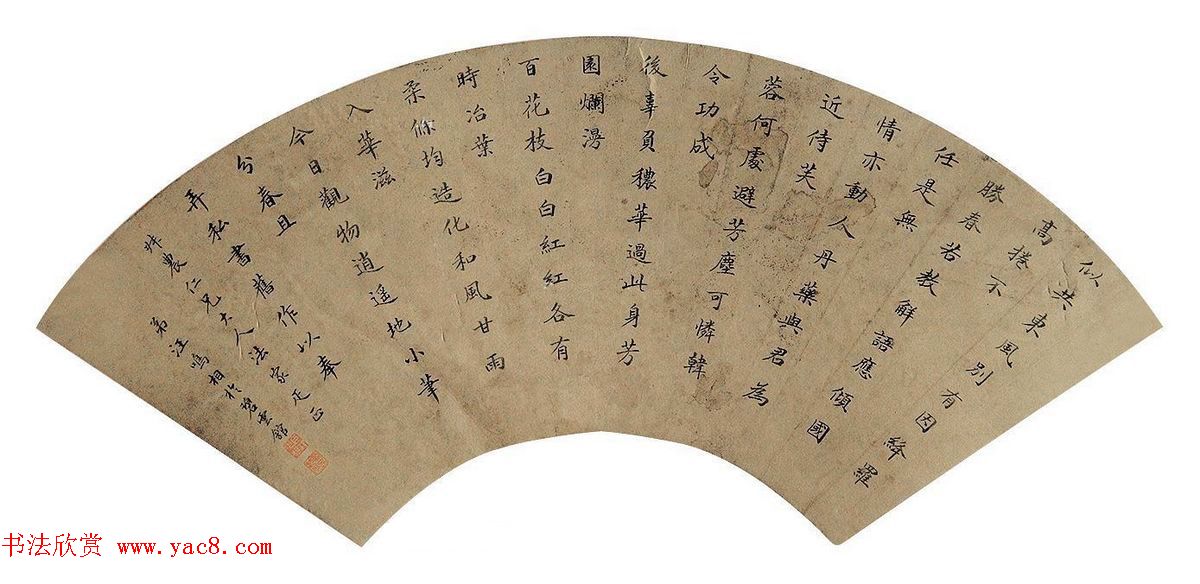 似共東風別有因絳羅
高捲不
勝春若教解語應傾國
任是無
情亦動人丹藥與君為
近侍芙
蓉何處避芳塵可憐韓
令功成
後辜負穠華過此身芳
園爛漫
百花枝白白紅紅各有
時冶葉
柔條均造化和風甘雨
入華滋
今日觀物逍遙地小筆
分春且
弄私書舊作以奉
艸農仁兄大人法家疋正
弟汪鳴相於碧雲館
书法欣赏 www.yac8.com